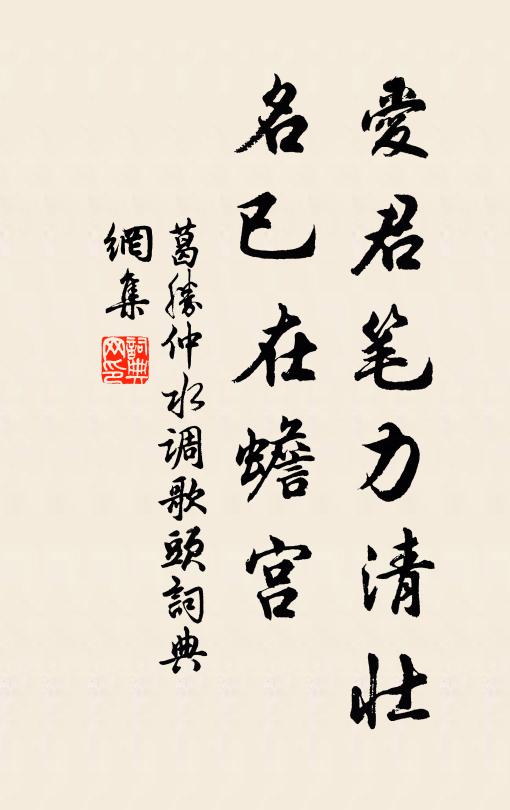 愛君笔力清壮
名已在蟾宫
葛勝仲水调歌頭詞典
網集
詞典
网印